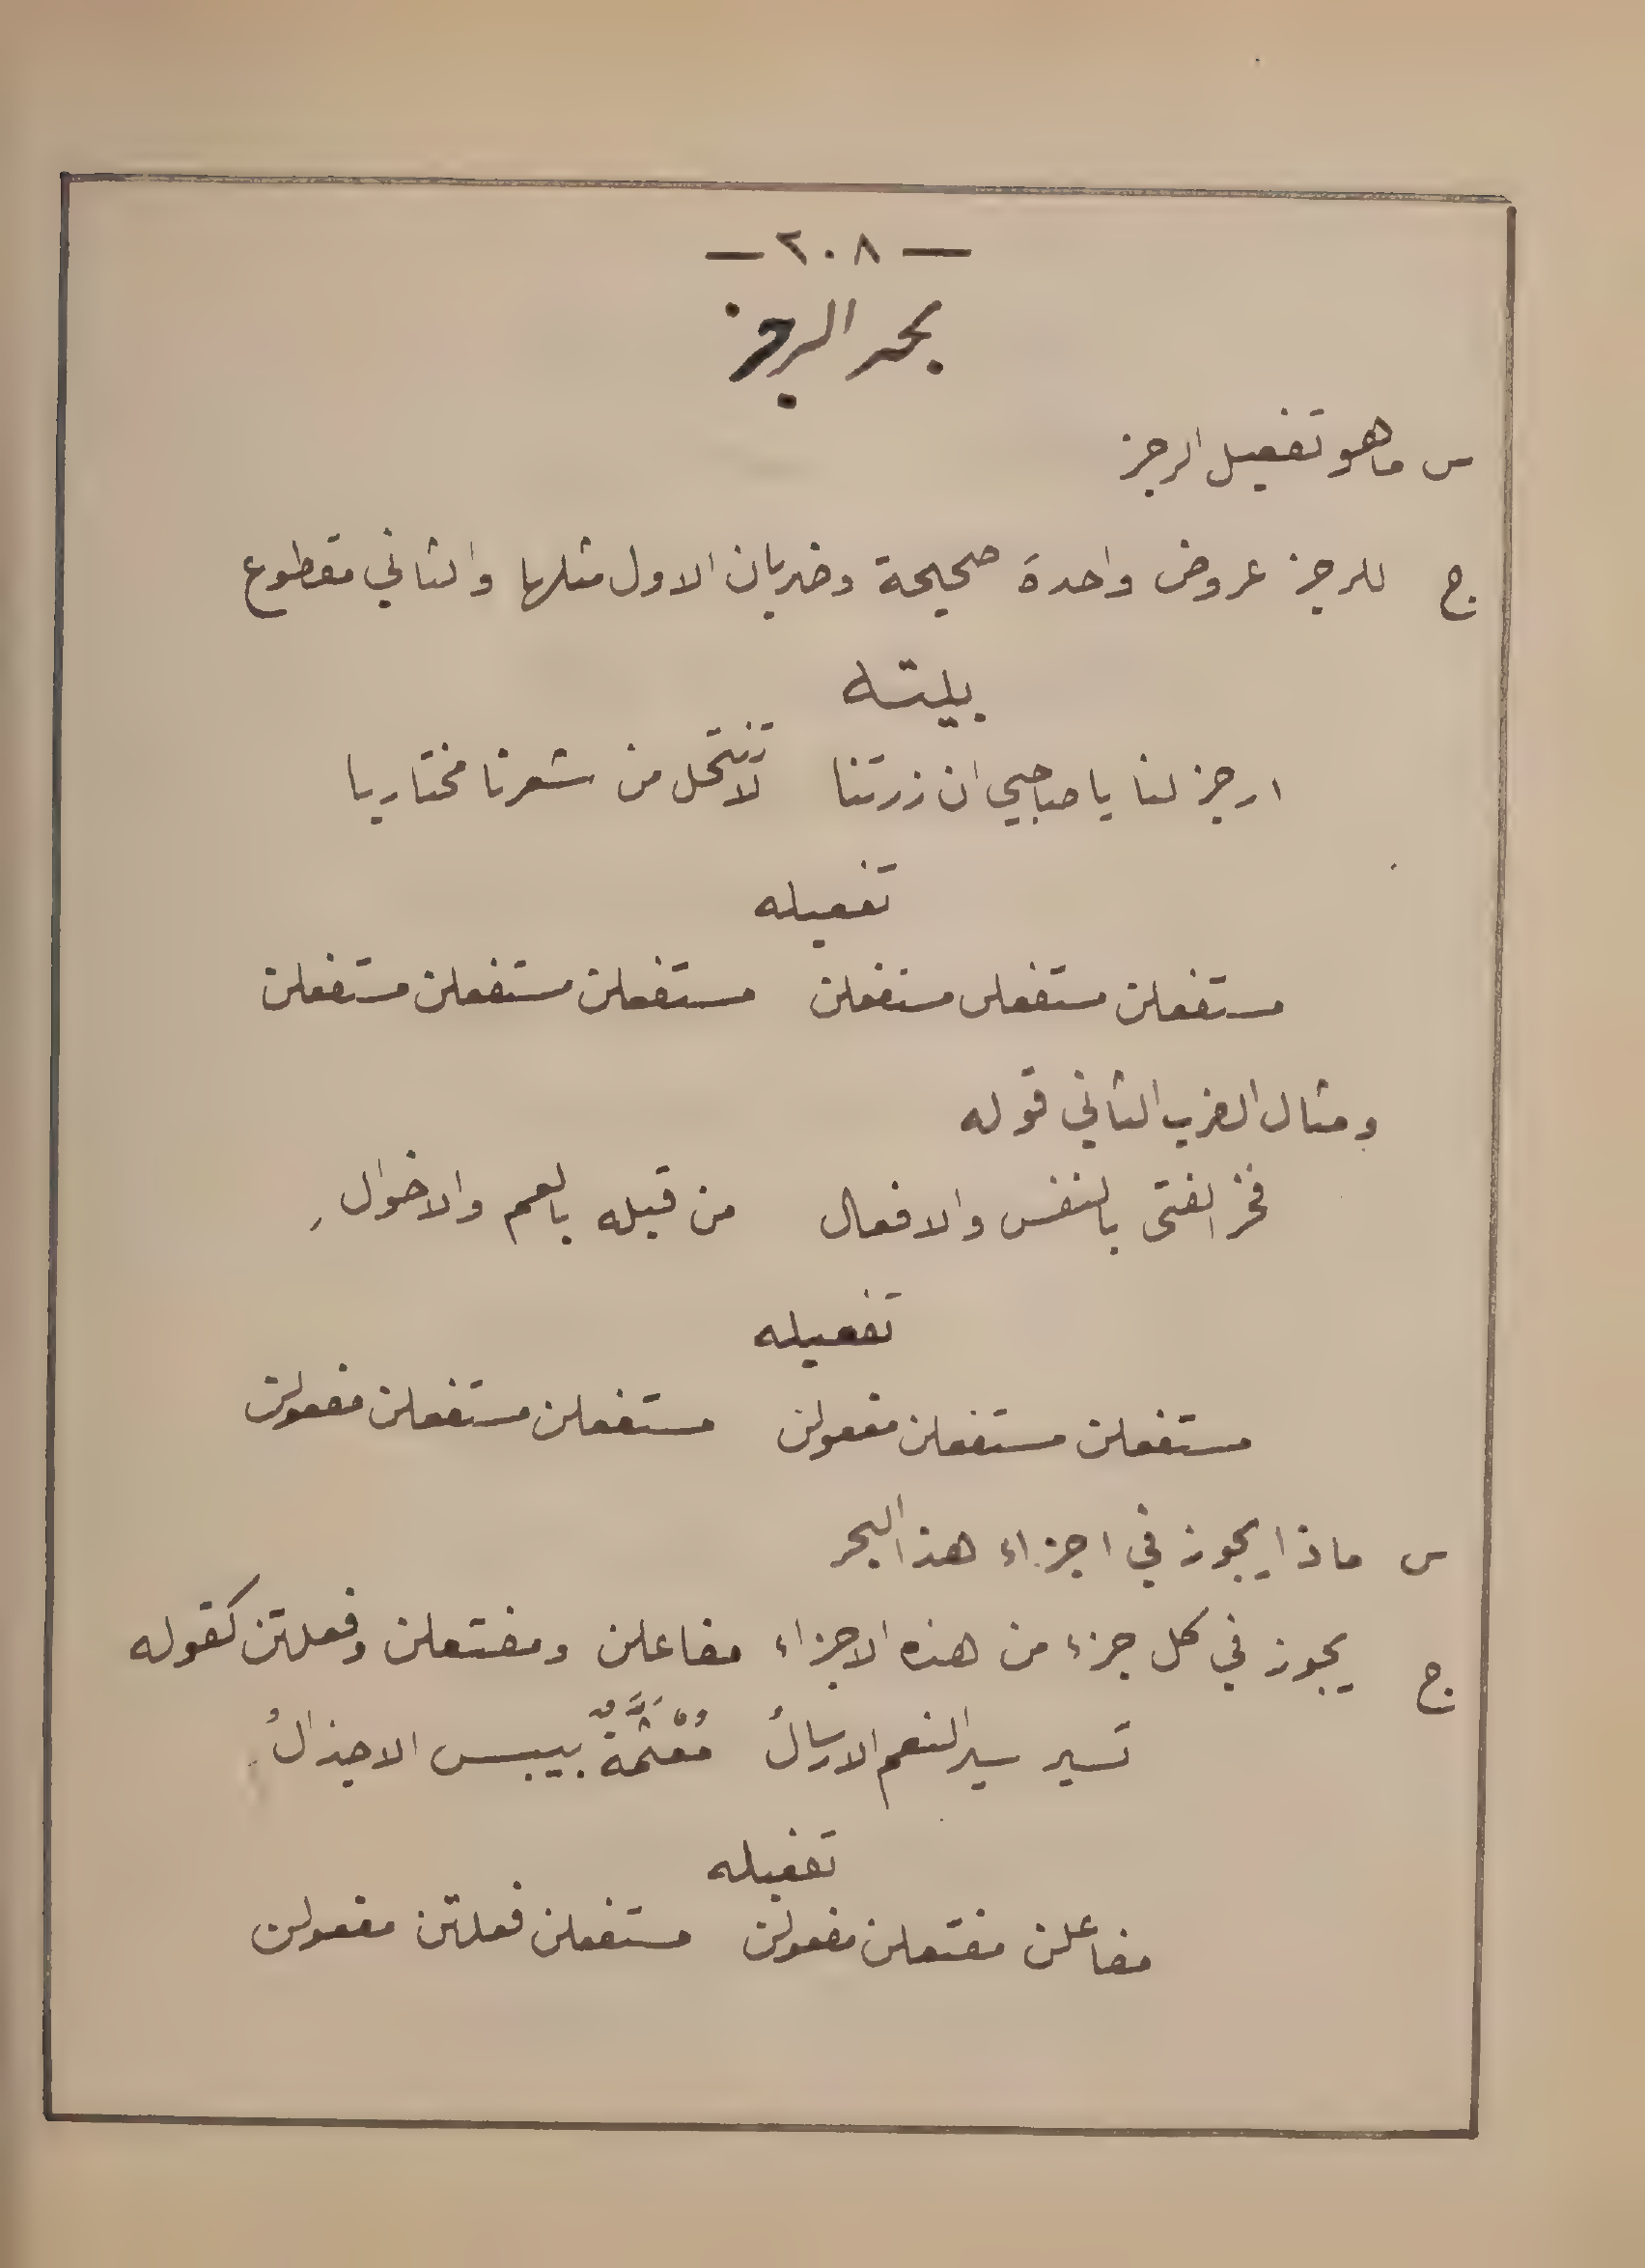 — ٢٠٨ —
بحر الرجز
س ما هو تفعيل الرجز
ج للرجز عروض واحدة صحيحة وضربان الاول مثلها والثاني مقطوع
بيته
ارجز لنا يا صاحبي ان زرتنا لا تنتحل من شعرنا مختاريا
تفعيله
مستفعلن مستفعلن مستفعلن مستفعلن مستفعلن مستفعلن
ومثال الضرب الثاني قوله
فخر الفتى بالنفس والافعال من قبله بالعم والاخوال
تفعيله
مستفعلن مستفعلن مفعولن مستفعلن مستفعلن مفعولن
س ماذا يجوز في اجزاء هذا البحر
ج يجوز في كل جزء من هذه الاجزاء مفاعلن ومفتعلن وفعلتن كقوله
تسير سير النعم الارسالُ بيبس الاجذالُ
تفعيله
مفاعلن مفتعلن مفعولن مستفعلن فعلتن مفعولن